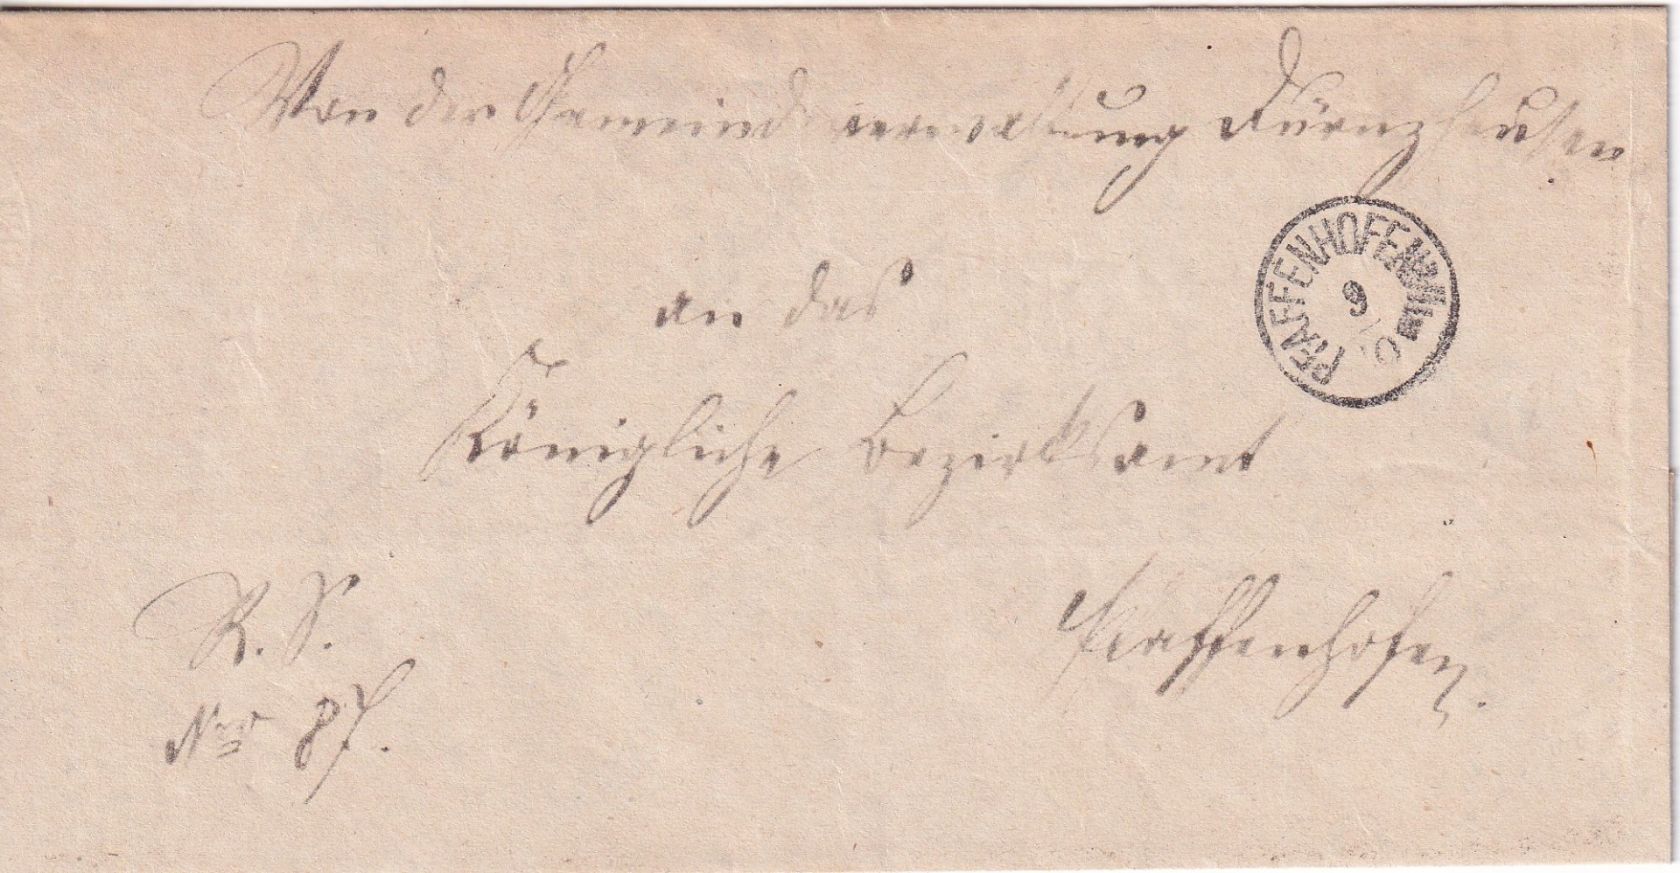 Von der Gemeindeverwaltung Dürnzhausen
PFAFFENHOFEN
9
an das
Königliche Bezirksamt
R. S.
Pfaffenhofen.
Nro 87.